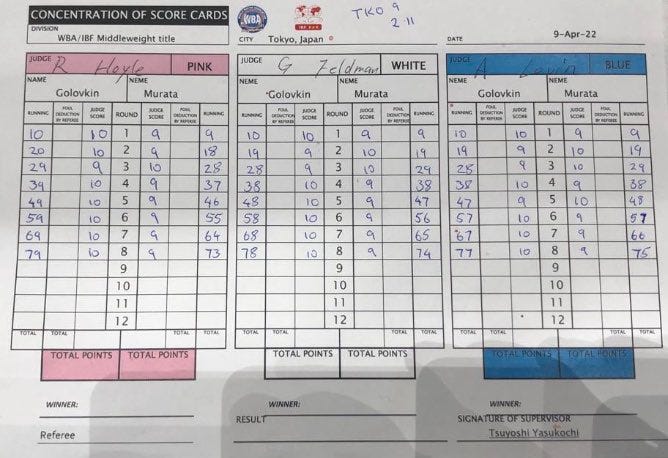 CONCENTRATION OF SCORE CARDS WBA IBF TKO 9
2.11
DIVISION
WBA/IBF Middleweight title CITY Tokyo, Japan DATE 9-Apr-22
JUDGE R Hoyle PINK JUDGE G Feldman WHITE JUDGE A Levin BLUE
NAME NEME NAME NEME NAME NEME
Golovkin Murata Golovkin Murata Golovkin Murata
RUNNING FOUL DEDUCTION BY REFEREE JUDGE SCORE ROUND JUDGE SCORE FOUL DEDUCTION BY REFEREE RUNNING RUNNING FOUL DEDUCTION BY REFEREE JUDGE SCORE ROUND JUDGE SCORE FOUL DEDUCTION BY REFEREE RUNNING RUNNING FOUL DEDUCTION BY REFEREE JUDGE SCORE ROUND JUDGE SCORE FOUL DEDUCTION BY REFEREE RUNNING
10 10 1 9 9 10 10 1 9 9 10 10 1 9 9
20 10 2 9 18 19 9 2 10 19 19 9 2 10 19
29 9 3 10 28 28 9 3 10 29 28 9 3 10 29
39 10 4 9 37 38 10 4 9 38 38 10 4 9 38
49 10 5 9 46 48 10 5 9 47 47 9 5 10 48
59 10 6 9 55 58 10 6 9 56 57 10 6 9 57
69 10 7 9 64 68 10 7 9 65 67 10 7 9 66
79 10 8 9 73 78 10 8 9 74 77 10 8 9 75
9 9 9
10 10 10
11 11 11
12 12 12
TOTAL TOTAL TOTAL TOTAL TOTAL TOTAL TOTAL TOTAL TOTAL TOTAL TOTAL TOTAL
TOTAL POINTS TOTAL POINTS TOTAL POINTS TOTAL POINTS TOTAL POINTS TOTAL POINTS
WINNER: WINNER: WINNER:
RESULT SIGNATURE OF SUPERVISOR
Referee Tsuyoshi Yasukochi